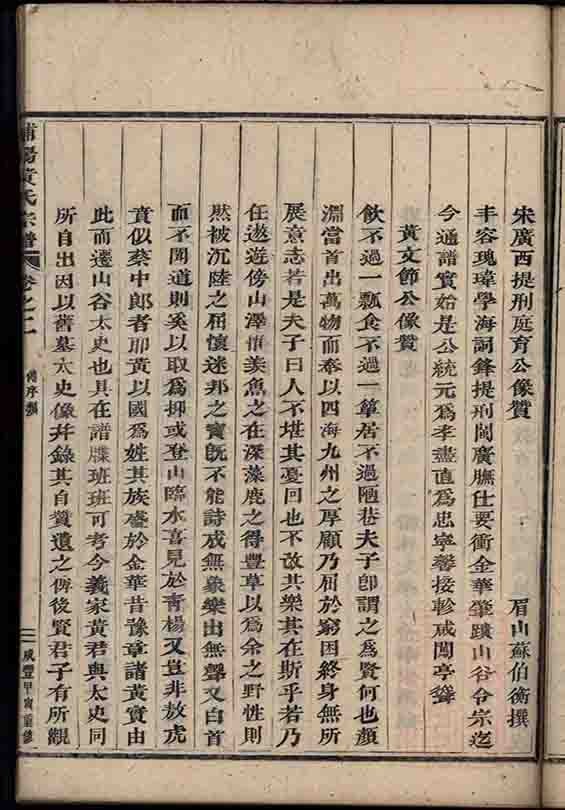 宋廣西提刑庭育公像贊
眉山蘇伯衡撰
丰容瑰瑋學海詞鋒提刑閩廣膴仕要衝金華肇蹟山谷令宗迄
今通譜實始是公統元為孝盡直為忠寧馨接軫戒閩亭聳
黃文節公像贊
飲不過一瓢食不過一簞居不過陋巷夫子卽謂之為賢何也顏
淵當首出萬物而奉以四海九州之厚願乃屈於窮因終身無所
展意志若是夫子曰人不堪其憂回也不改其樂其在斯乎若乃
任遨遊傍山澤惜羨魚之在深藻鹿之得豐草以為余之野性則
然被沉陸之屈懷迷邦之寶旣不能詩成無象樂出無聲又白首
而不聞道則奚以取為抑或登山臨水喜見於青楊又豈非放虎
賁似蔡中郎者耶黃以國為姓其族盛於金華昔豫章諸黃實由
此而遷山谷太史也具在譜牒班班可考今義家黃君與太史同
所自出因以舊墓太史像幷錄其自贊遺之俾後賢君子有所觀
浦陽黃氏宗譜
卷之二
備序類
二
咸豐甲寅重修